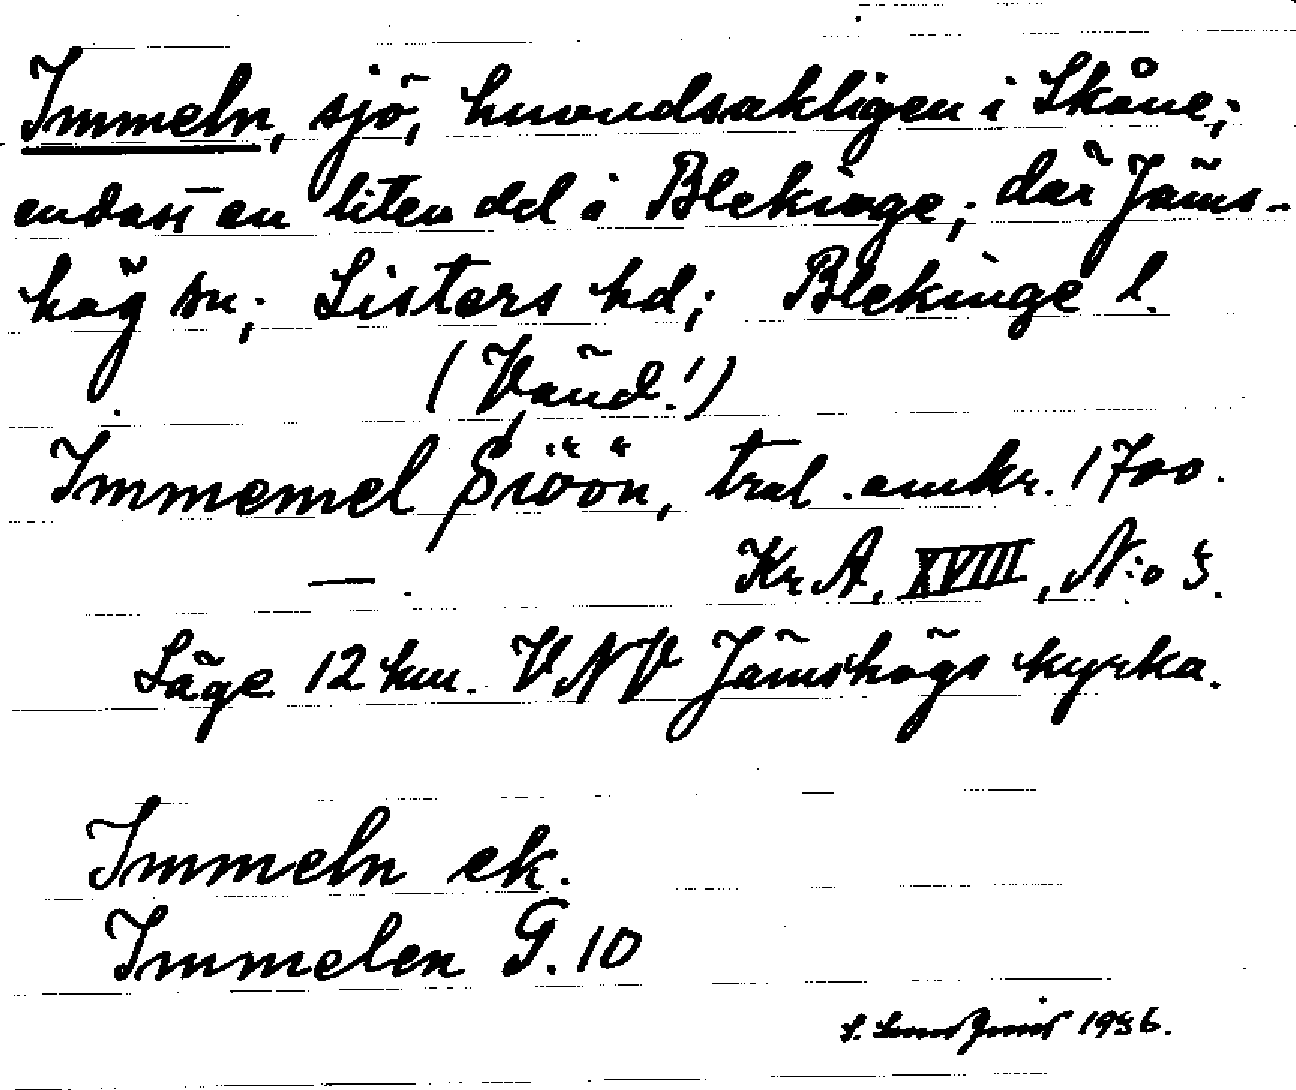 Immeln, sjö, huvudsakligen i Skåne;
endast en liten del i Blekinge; där Jäms-
hög sn; Listers hd; Blekinge l.
(Vänd!)
Immemel Siöön, trol. omkr. 1700.
Kr. A. XVIII, N:o 3.
—.
Läge 12 km. VNV Jämshögs kyrka.
Immeln ek.
Immelen G. 10
S. 1936.